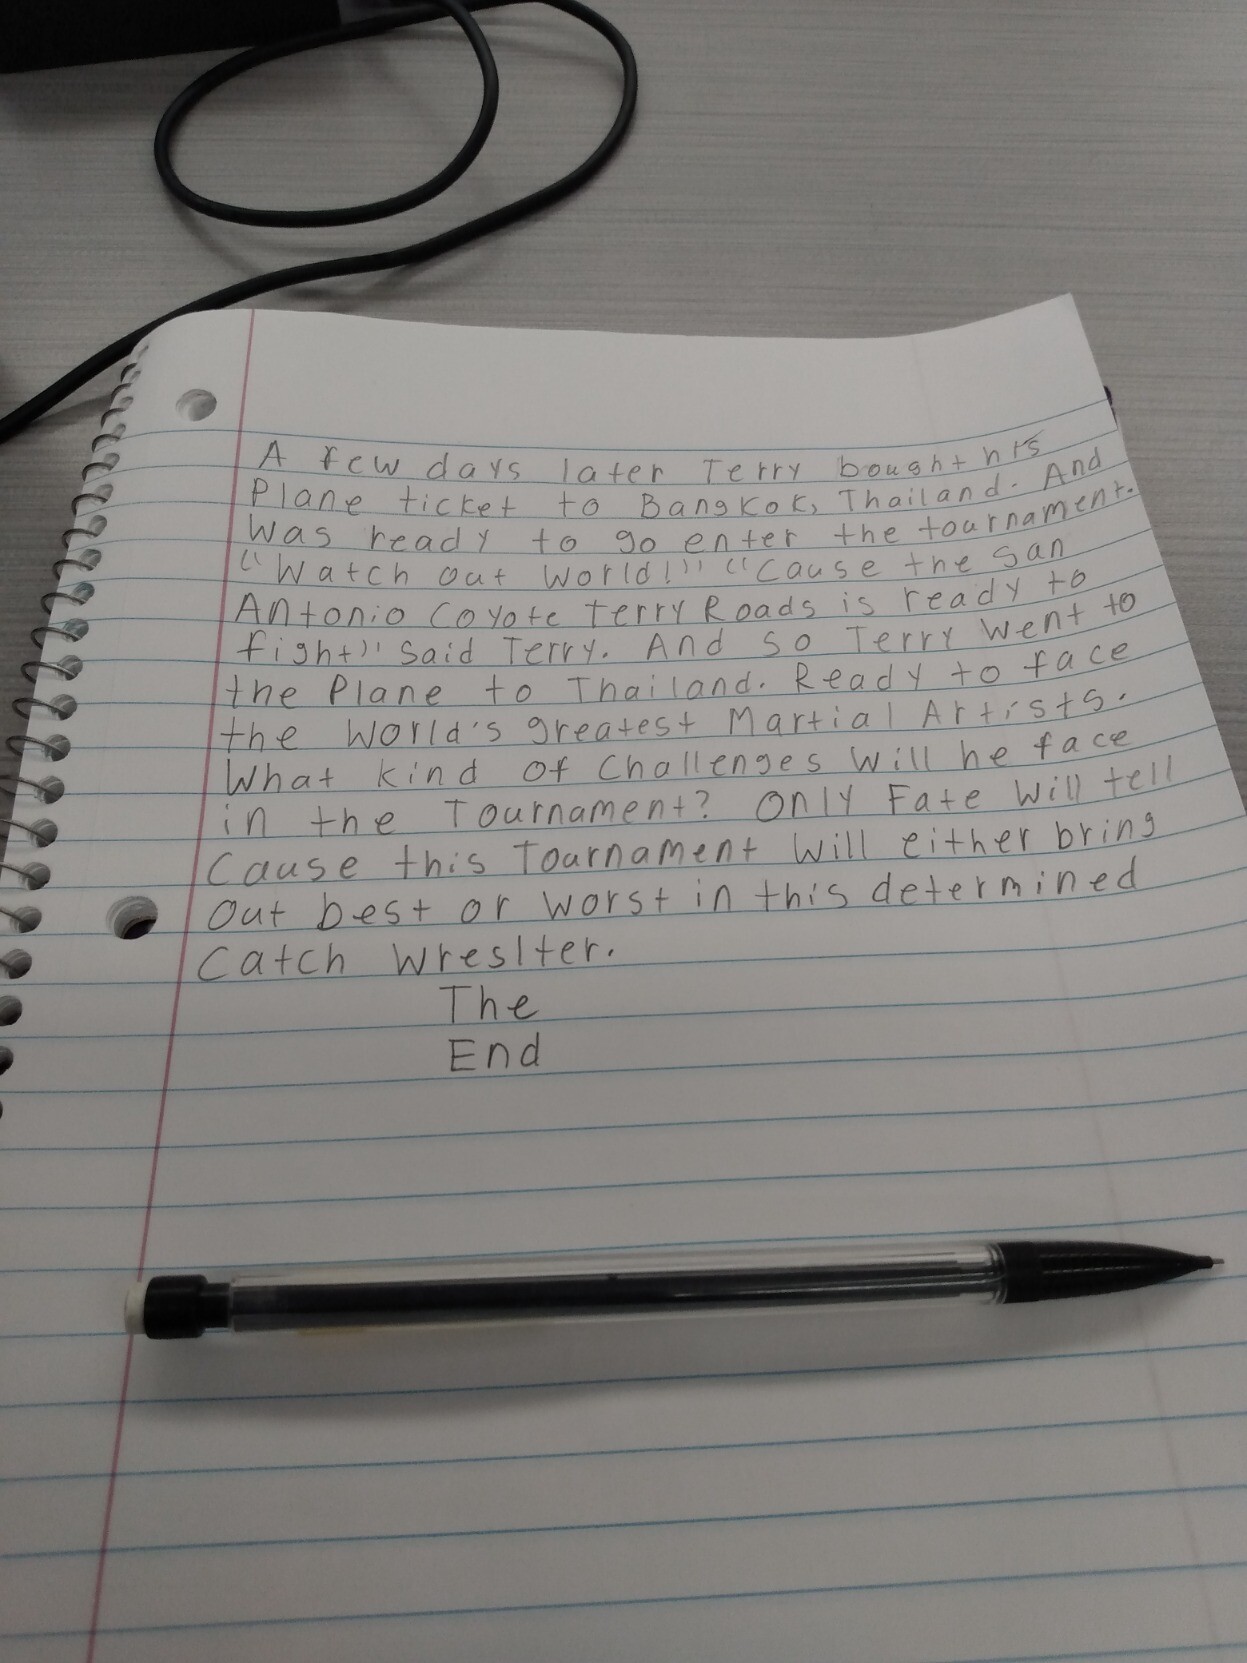 A few days later Terry bought his
Plane ticket to Bangkok, Thailand. And
Was ready to go enter the tournament.
"Watch out World!" "Cause the San
Antonio Coyote Terry Roads is ready to
fight" Said Terry. And so Terry Went to
the Plane to Thailand. Ready to face
the World's greatest Martial Artists.
What kind of Challenges Will he face
in the Tournament? Only Fate Will tell
Cause this Tournament Will either bring
Out best or worst in this determined
Catch Wreslter.
The
End